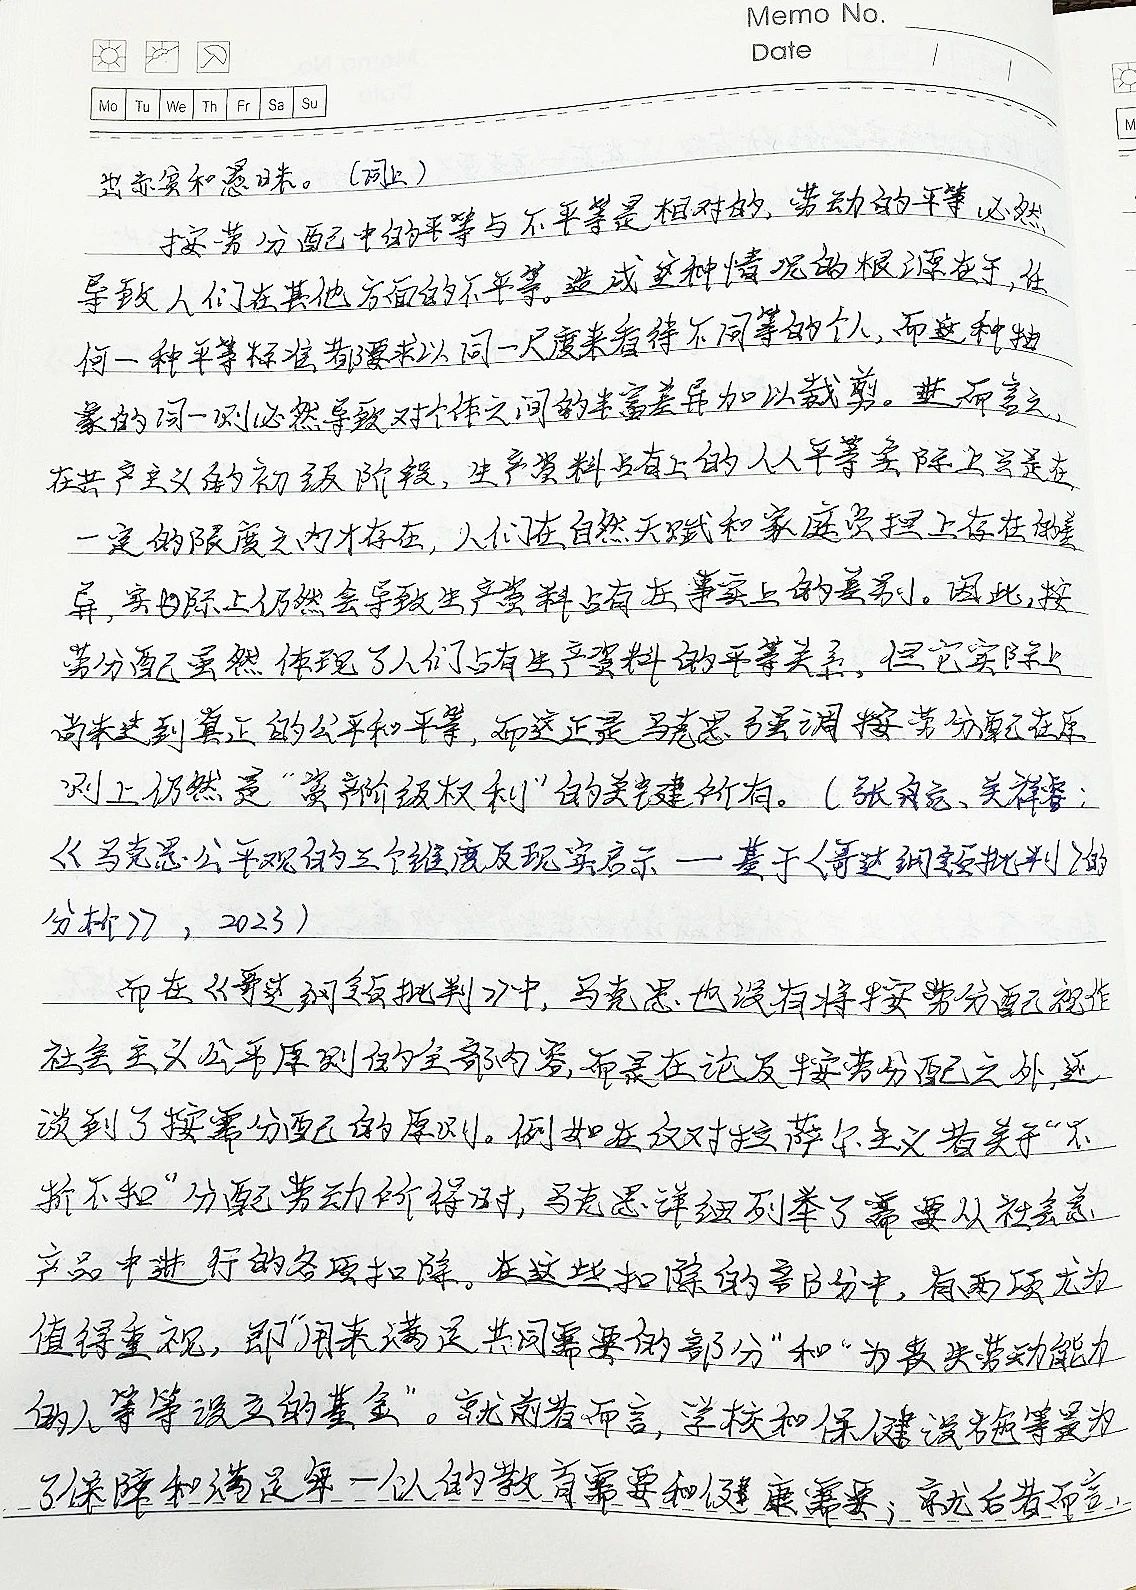 Memo No.
Date
Mo Tu We Th Fr Sa Su
出赤贫和愚昧。(同上)
按劳分配中的平等与不平等是相对的，劳动的平等必然
导致人们在其他方面的不平等。造成这种情况的根源在于，任
何一种平等标准都要求以同一尺度来看待不同等的个人，而这种抽
象的同一则必然导致对个体之间的丰富差异加以裁剪。 而言之，
在共产主义的初级阶段，生产资料占有上的人人平等实际上只是在
一定的限度之内才存在，人们在自然天赋和家庭负担上存在的差
异，实际上仍然会导致生产资料占有在事实上的差别。因此，按
劳分配虽然体现了人们占有生产资料的平等关系，但它实际上
尚未达到真正的公平和平等，而这正是马克思强调按劳分配在原
则上仍然是“资产阶级权利”的关键所在。(张 、关祥睿：
《马克思公平观的三个维度及现实启示——基于〈哥达纲领批判〉的
分析》，2023)
而在《哥达纲领批判》中，马克思也没有将按劳分配视作
社会主义公平原则的全部内容，而是在论及按劳分配之外，还
谈到了按需分配的原则。例如在反对拉萨尔主义者关于“不
折不扣”分配劳动所得时，马克思详细列举了需要从社会总
产品中进行的各项扣除。在这些扣除的部分中，有两项尤为
值得重视，即“用来满足共同需要的部分”和“为丧失劳动能力
的人等等设立的基金”。就前者而言，学校和保健设施等是为
了保障和满足每一个人的教育需要和健康需要；就后者而言，